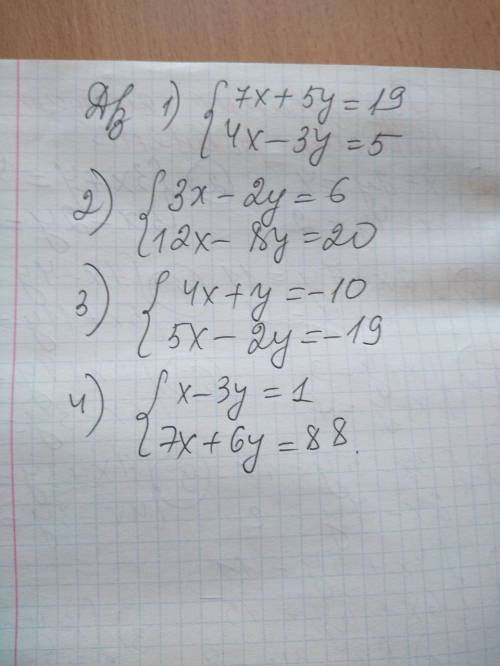 Дз 1) { 7x + 5y = 19
4x - 3y = 5
2) { 3x - 2y = 6
12x - 8y = 20
3) { 4x + y = -10
5x - 2y = -19
4) { x - 3y = 1
7x + 6y = 88.